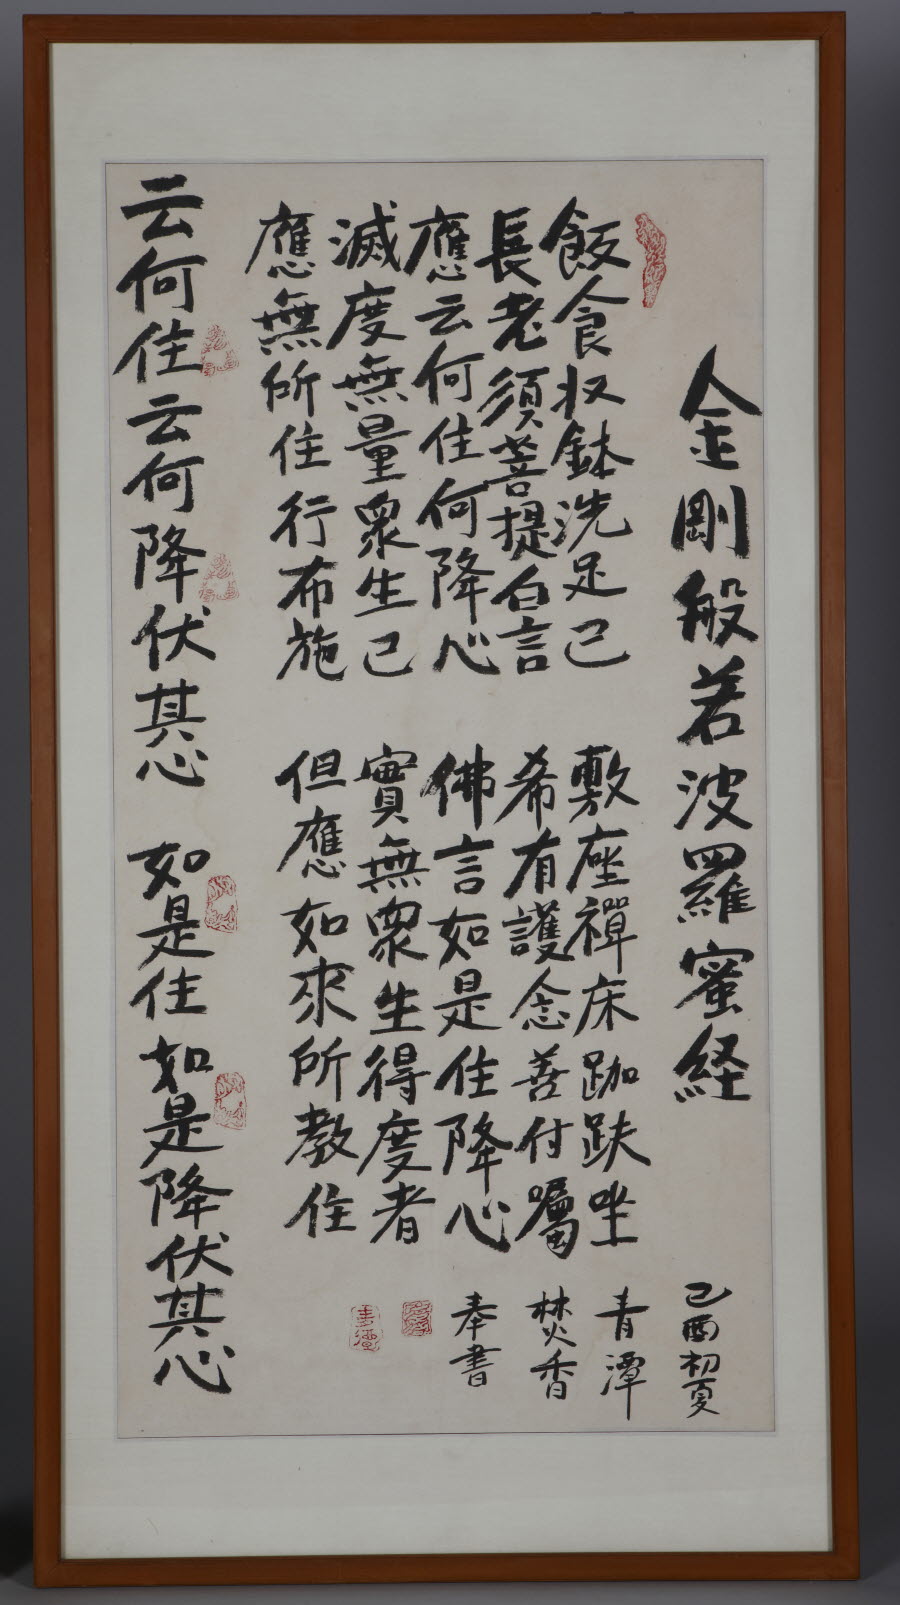 金剛般若波羅蜜経
己酉初夏
飯食収鉢洗足已
敷座禪床跏趺坐
長老須菩提白言
希有護念善付囑
應云何住何降心
佛言如是住降心
滅度無量衆生已
實無衆生得度者
應無所住行布施
但應如來所教住
青潭
焚香
奉書
云何住云何降伏其心
如是住如是降伏其心